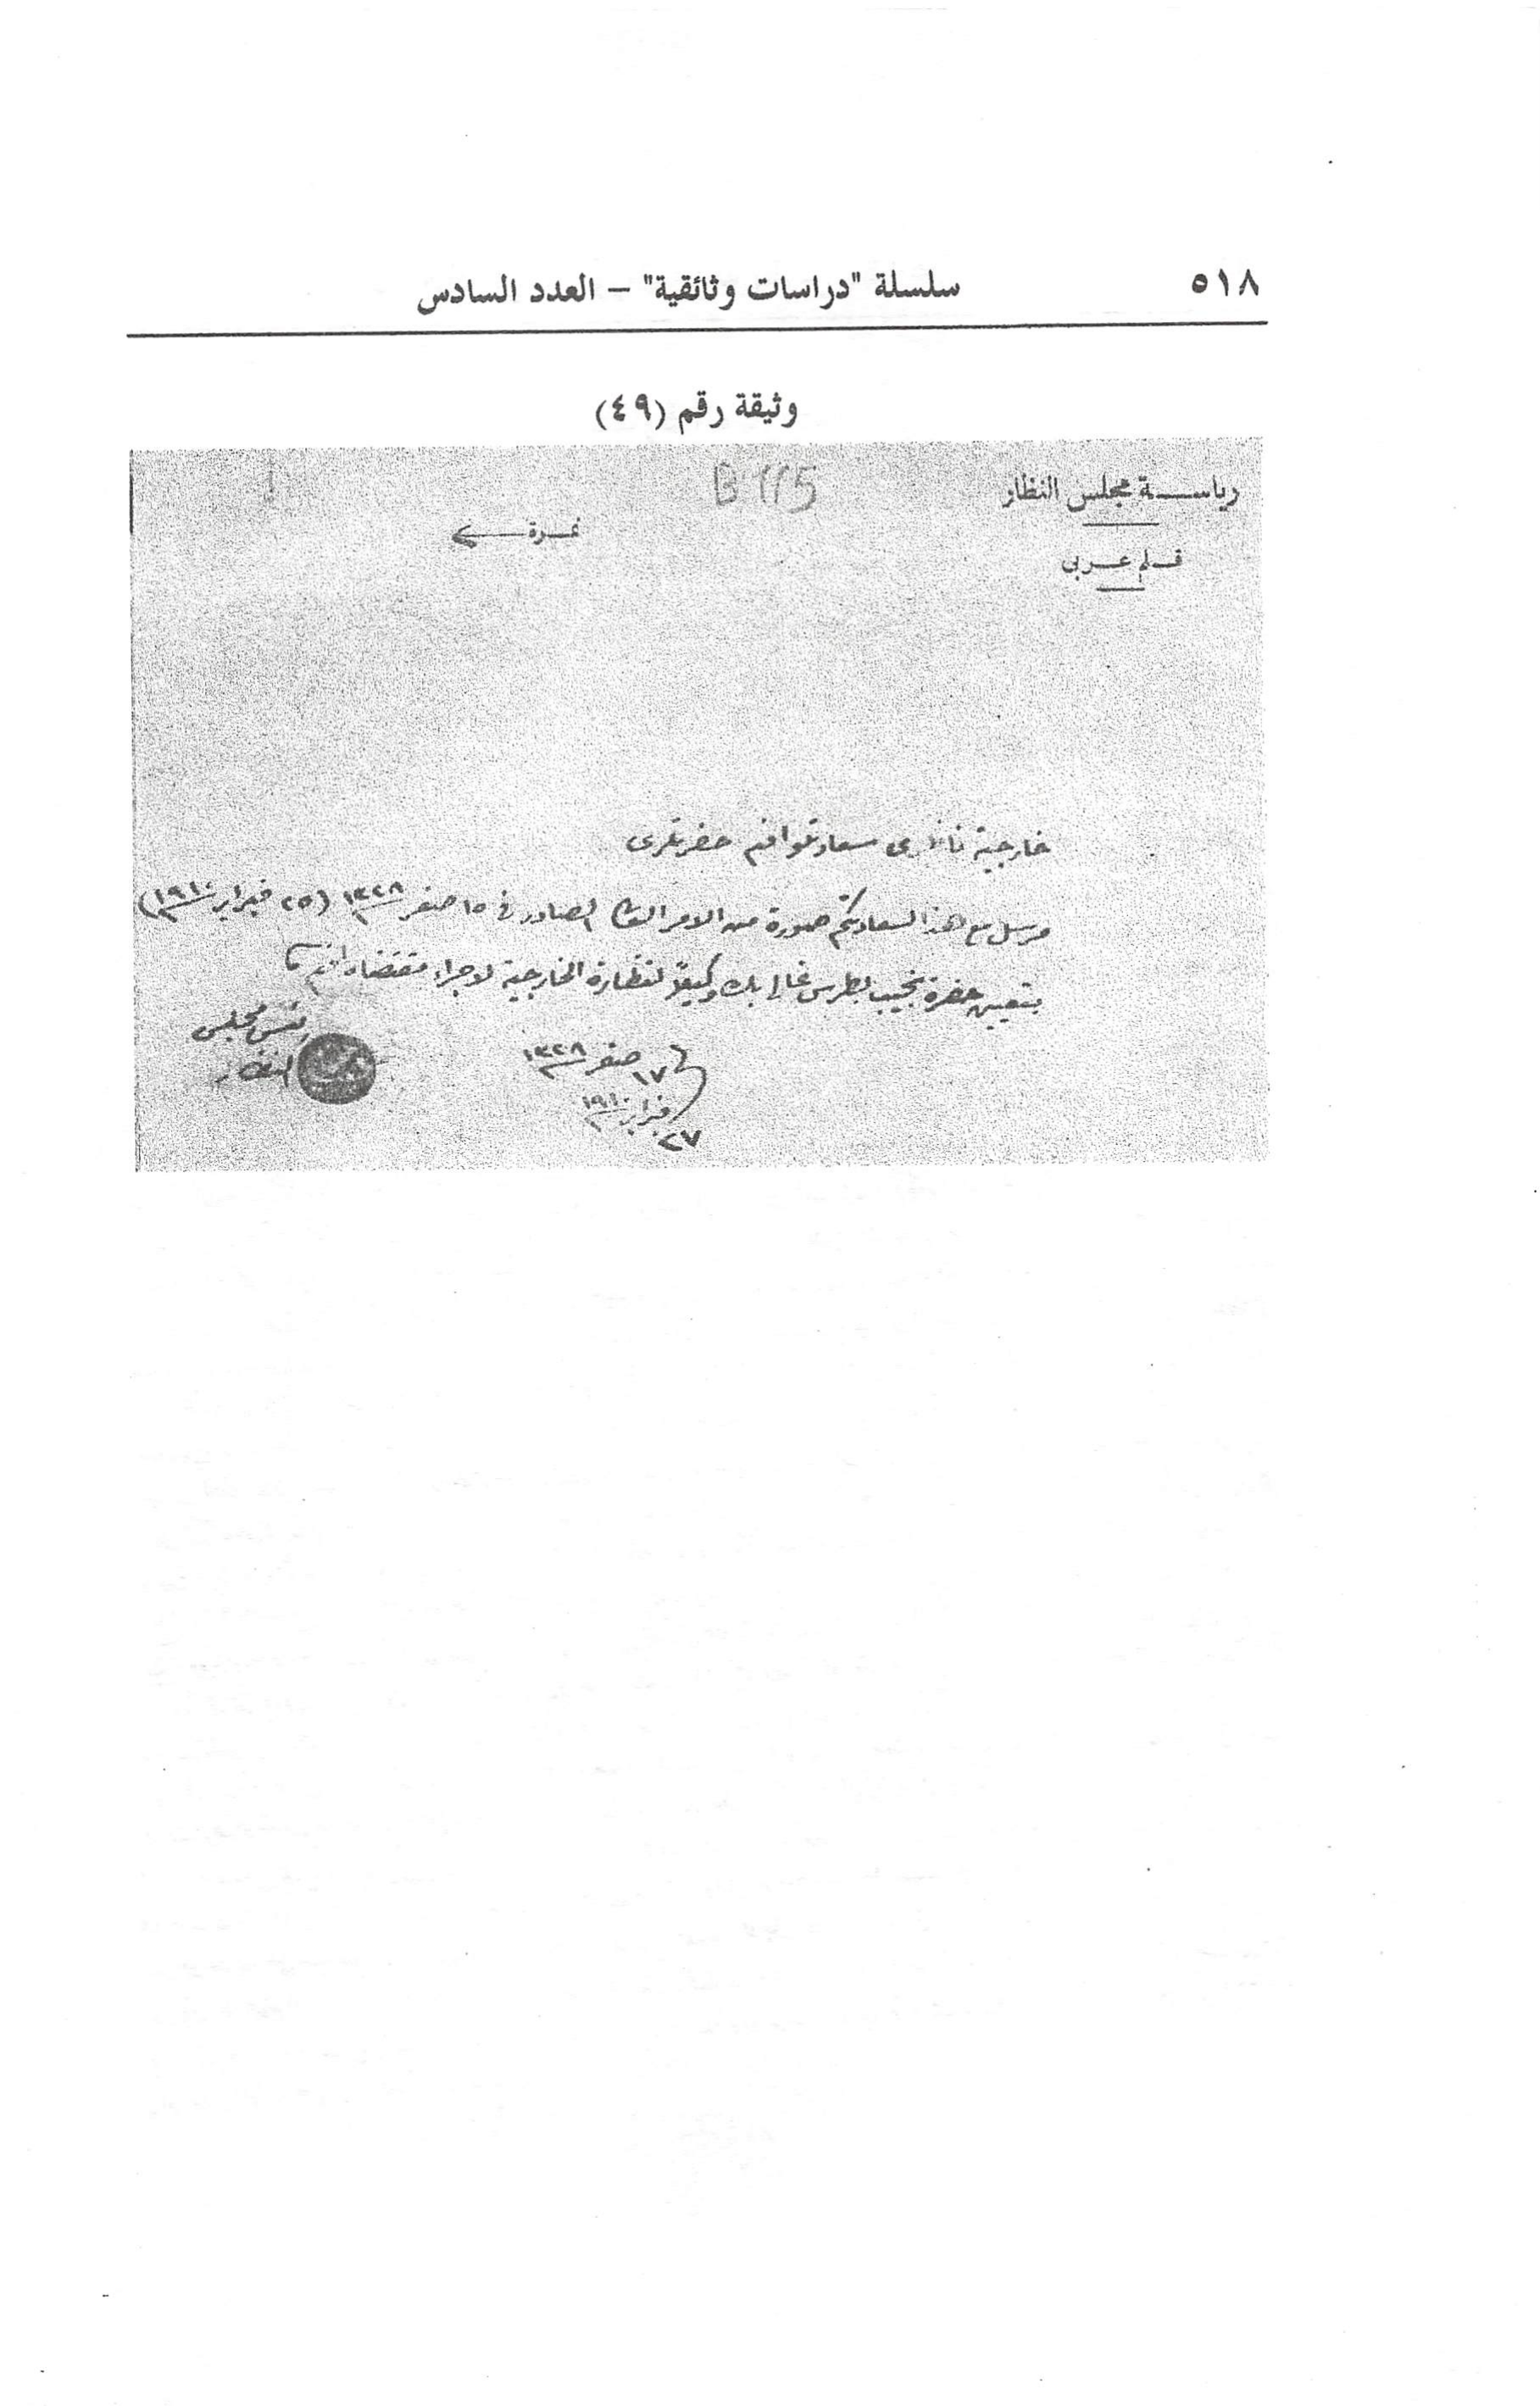 ٥١٨
سلسلة "دراسات وثائقية" – العدد السادس
وثيقة رقم (٤٩)
B 115
رياسة مجلس النظار
نمرة
قلم عربى
خارجية ناظرى سعادتلو افندم حضرتلرى
مرسل مع هذا لسعادتكم صورة من الامر العالى الصادر فى ١٥ صفر سنة ١٣٢٨ (٢٥ فبراير سنة ١٩١٠)
بتعيين حضرة نجيب بطرس غالى بك وكيلاً لنظارة الخارجية لاجراء مقتضاه افندم
رئيس مجلس
النظار
١٧ صفر سنة ١٣٢٨
٢٧ فبراير سنة ١٩١٠